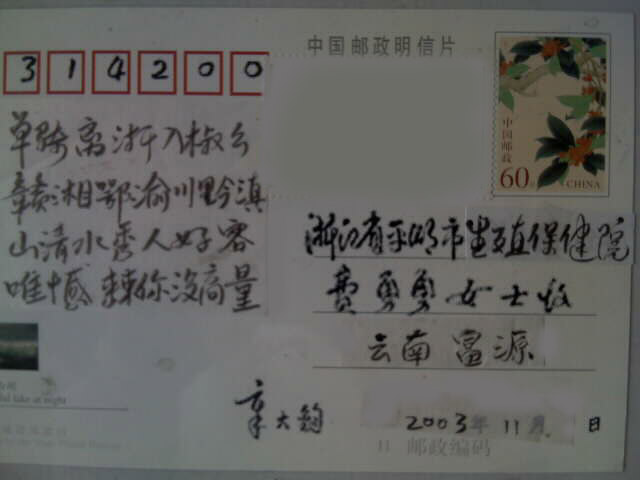 中国邮政明信片
314200
中国邮政
60分 CHINA
单骑离浙入椒
赣湘鄂渝川黔滇
山清水秀人好客
唯憾辣你没商量
浙江省平湖市生殖保健院
费勇勇女士收
云南富源
章大钧
2003年11月 日
邮政编码
lake at night